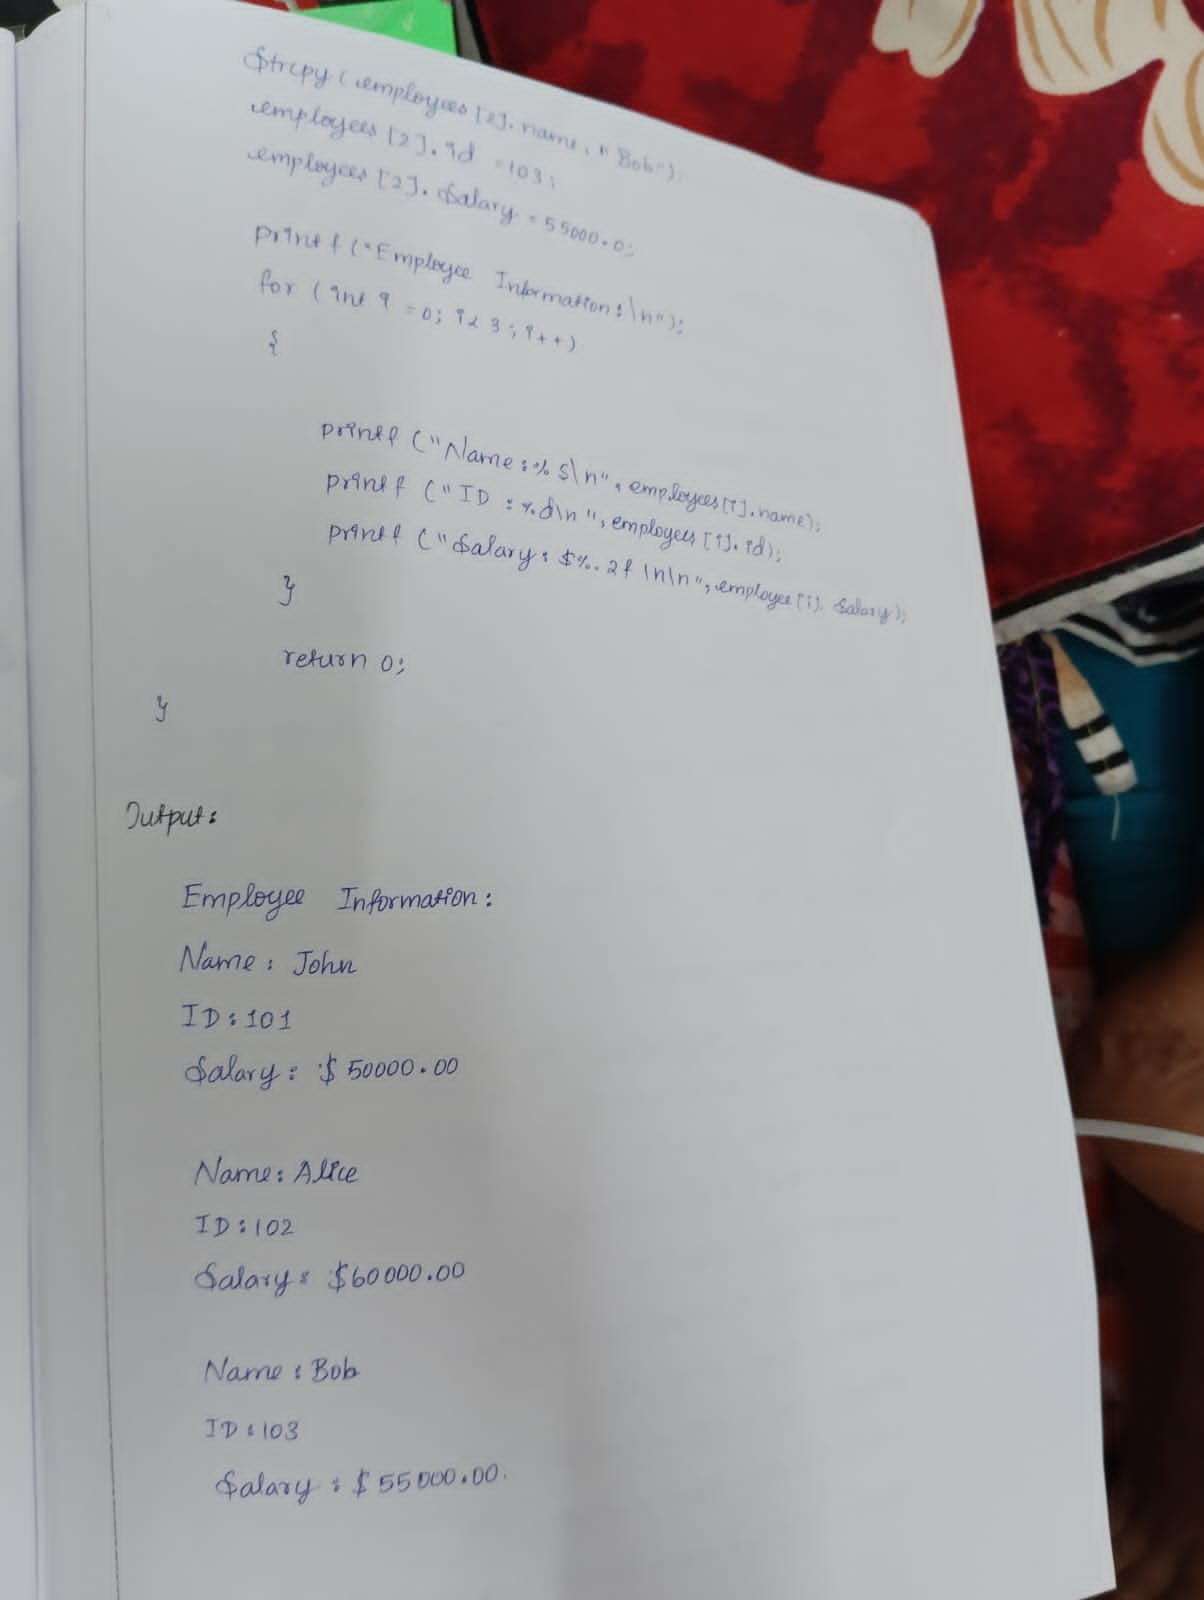 strcpy (employees [2]. name, "Bob");
employees [2]. id = 103;
employees [2]. salary = 55000.0;
printf ("Employee Information: \n");
for (int i = 0; i < 3; i++)
{
printf ("Name: % s\n", employees [i]. name);
printf ("ID : %d\n", employees [i]. id);
printf ("Salary: $%.2f \n\n", employee [i]. salary);
}
return 0;
}
Output:
Employee Information:
Name: John
ID: 101
Salary: $ 50000.00
Name: Alice
ID: 102
Salary: $60000.00
Name: Bob
ID: 103
Salary: $ 55000.00.